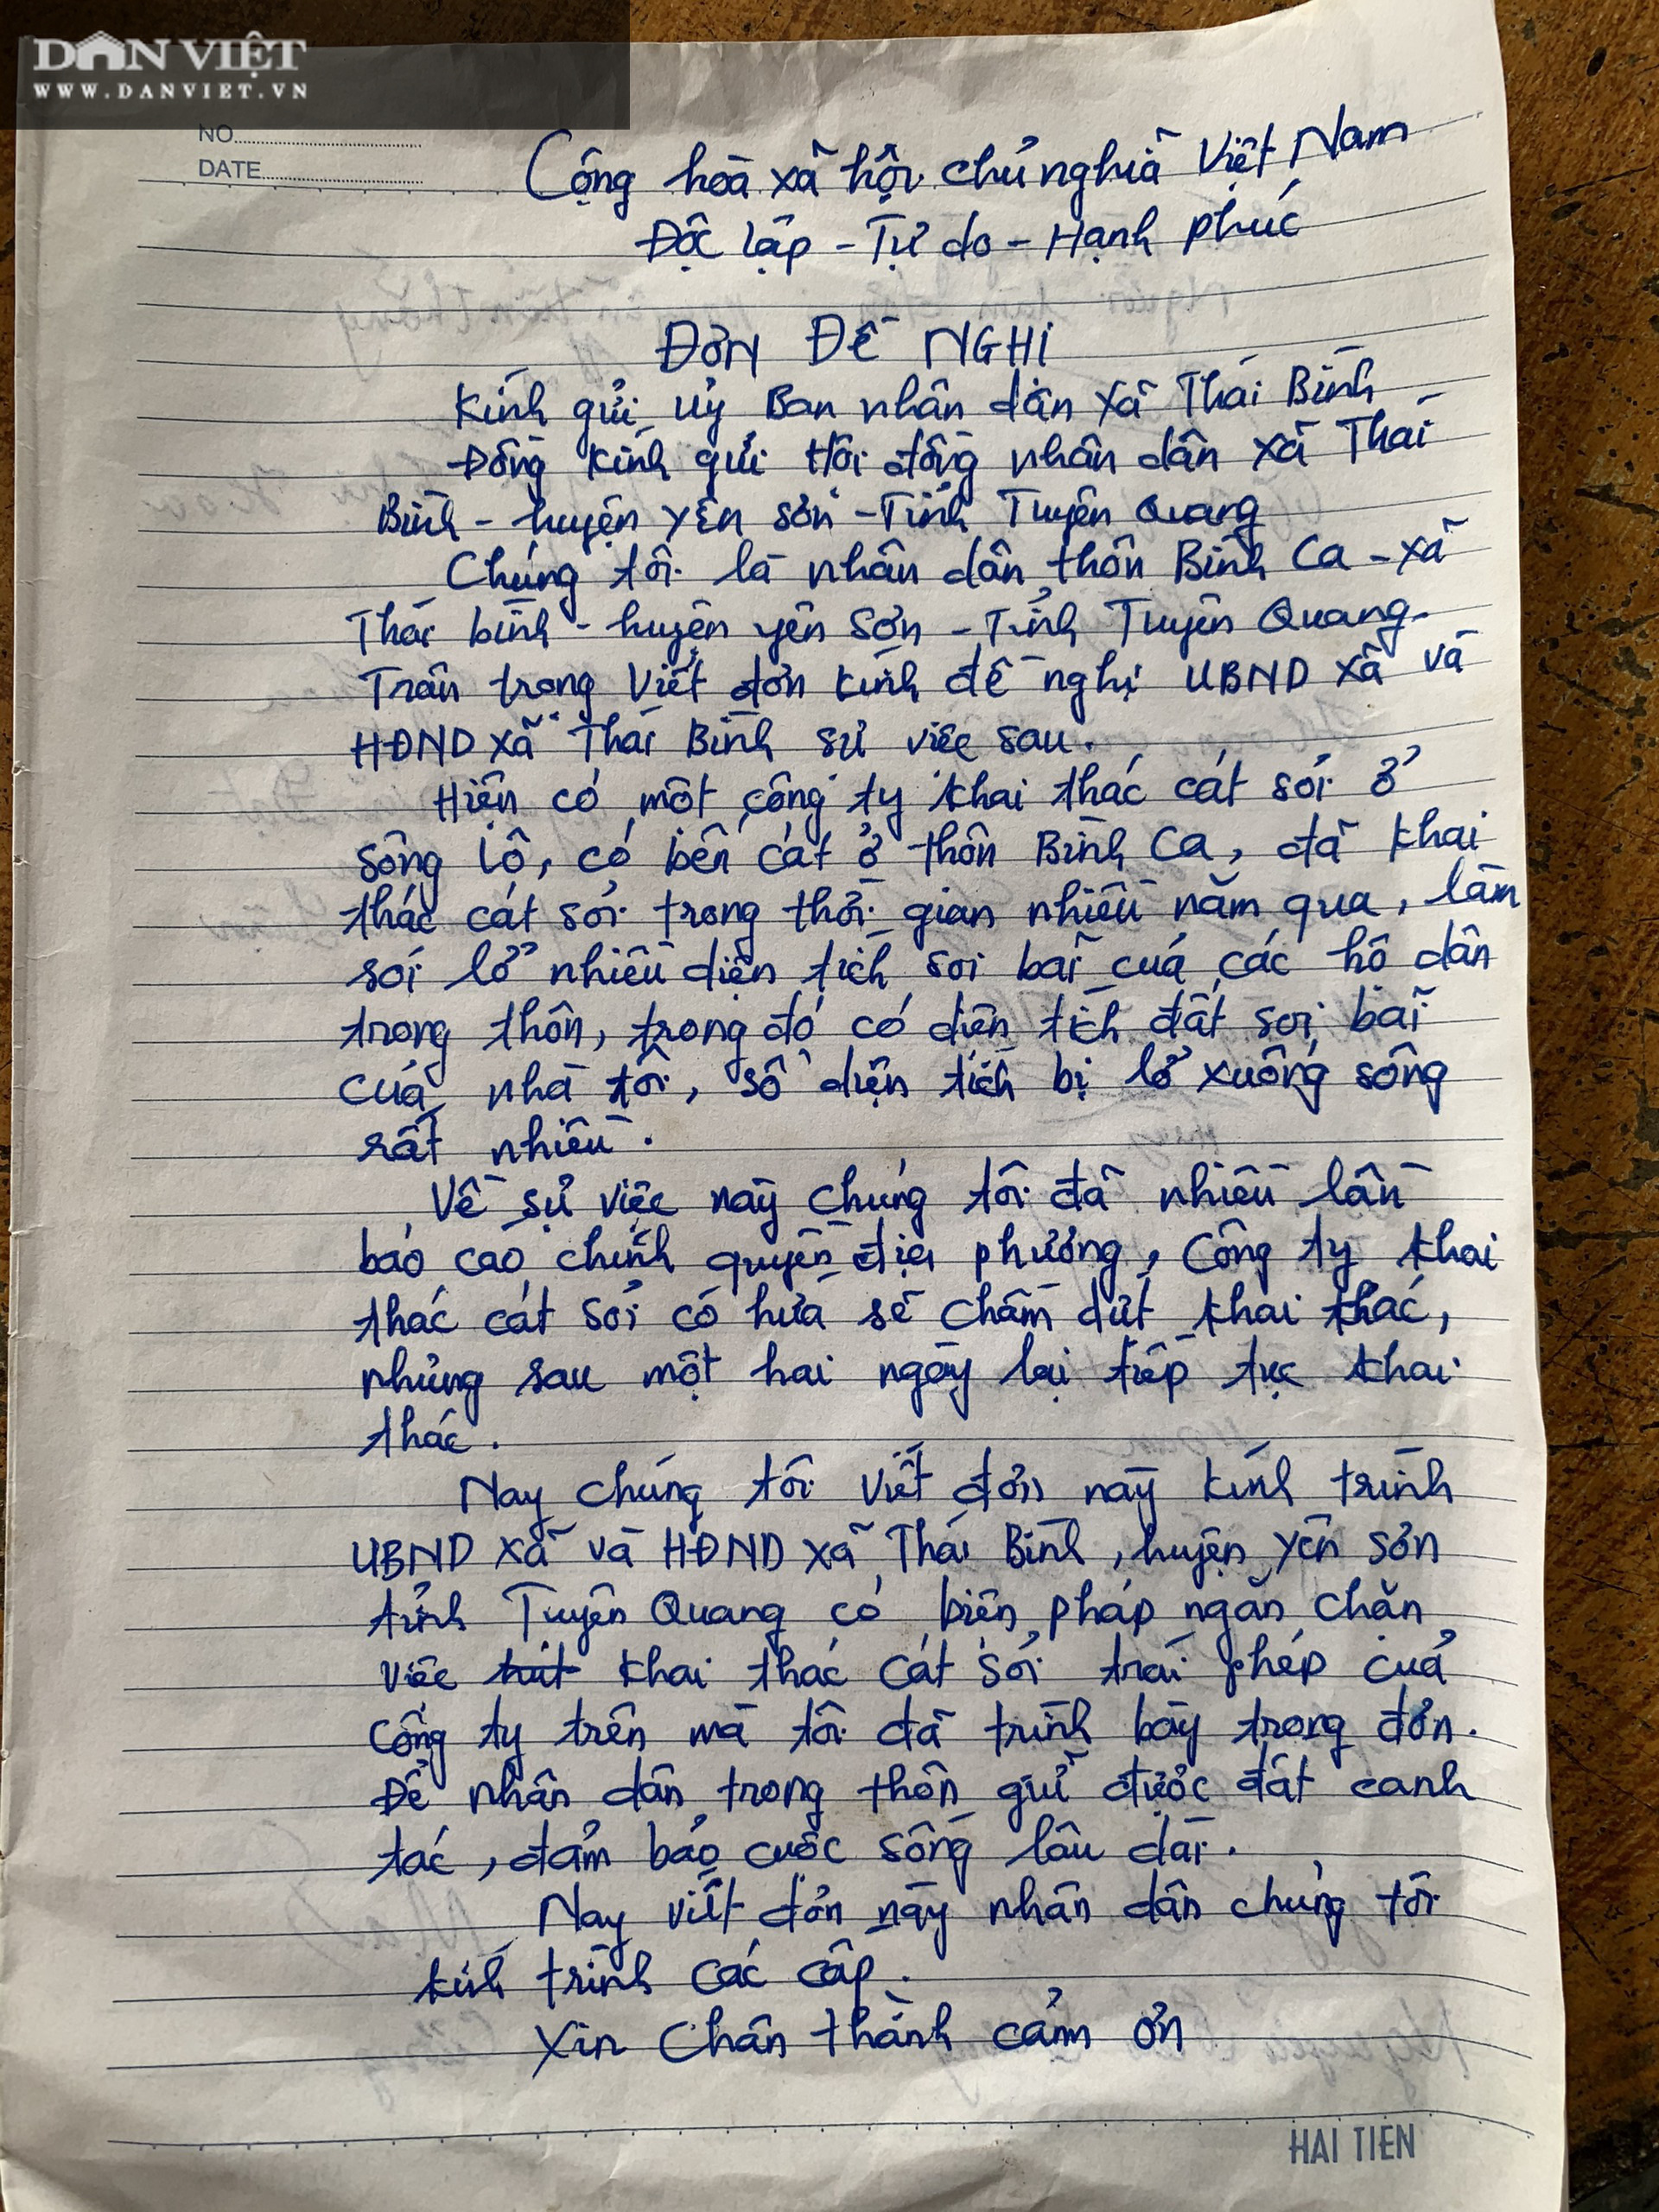 DÂN VIỆT
WWW.DANVIET.VN
NO
DATE
Cộng hoà xã hội chủ nghiã Việt Nam
Độc lập - Tự do - Hạnh phúc
ĐƠN ĐỀ NGHỊ
Kính gửi uỷ Ban nhân dân xã Thái Bình
Đồng kính gửi Hội đồng nhân dân xã Thái
Bình - huyện Yên Sơn - Tỉnh Tuyên Quang
Chúng tôi là nhân dân thôn Bình Ca - xã
Thái bình - huyện yên Sơn - Tỉnh Tuyên Quang.
Trân trọng Viết đơn kính đề nghị UBND xã và
HĐND xã Thái Bình sự việc sau.
Hiện có một công ty khai thác cát sỏi ở
sông lô, có bến cát ở thôn Bình Ca, đã khai
thác cát sỏi trong thời gian nhiều năm qua, làm
sói lở nhiều diện tích soi bãi của các hộ dân
trong thôn, trong đó có diện tích đất soi bãi
của nhà tôi, số diện tích bị lở xuống sông
rất nhiều.
Về sự việc này chúng tôi đã nhiều lần
báo cáo chính quyền địa phương, Công ty khai
thác cát sỏi có hứa sẽ chấm dứt khai thác,
nhưng sau một hai ngày lại tiếp tục khai
thác.
Nay chúng tôi viết đơn này kính trình
UBND xã và HĐND xã Thái Bình, huyện yên sơn
tỉnh Tuyên Quang có biện pháp ngăn chặn
việc hút khai thác cát sỏi trái phép của
công ty trên mà tôi đã trình bày trong đơn.
Để nhân dân trong thôn giữ được đất canh
tác, đảm bảo cuộc sống lâu dài.
Nay viết đơn này nhân dân chúng tôi
kính trình các cấp.
Xin Chân thành cảm ơn
HAI TIEN